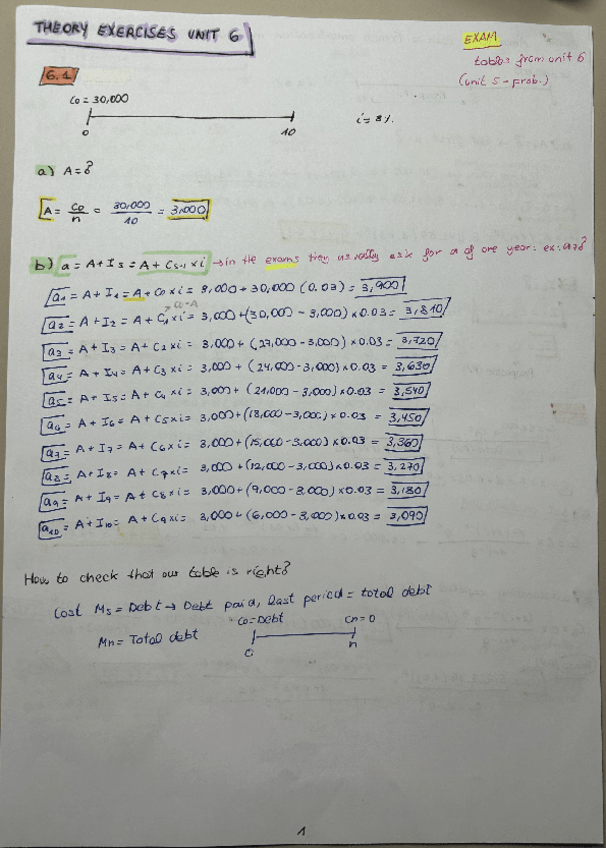 THEORY EXERCISES UNIT 6
EXAM
tables from unit 6
(unit 5 - prob.)
6.1
C0 = 30,000
0 10
a) A=?
A = C0/n = 30,000/10 = 3,000
b) a = A + Is = A + Cs-1 × i → in the exams they usually ask for a of one year: ex: a7?
a1 = A + I1 = A + C0 × i = 3,000 + 30,000 (0.03) = 3,900
C0-A
a2 = A + I2 = A + C1 × i = 3,000 + (30,000 - 3,000) × 0.03 = 3,810
a3 = A + I3 = A + C2 × i = 3,000 + (27,000 - 3,000) × 0.03 = 3,720
a4 = A + I4 = A + C3 × i = 3,000 + (24,000 - 3,000) × 0.03 = 3,630
a5 = A + I5 = A + C4 × i = 3,000 + (21,000 - 3,000) × 0.03 = 3,540
a6 = A + I6 = A + C5 × i = 3,000 + (18,000 - 3,000) × 0.03 = 3,450
a7 = A + I7 = A + C6 × i = 3,000 + (15,000 - 3,000) × 0.03 = 3,360
a8 = A + I8 = A + C7 × i = 3,000 + (12,000 - 3,000) × 0.03 = 3,270
a9 = A + I9 = A + C8 × i = 3,000 + (9,000 - 3,000) × 0.03 = 3,180
a10 = A + I10 = A + C9 × i = 3,000 + (6,000 - 3,000) × 0.03 = 3,090
How to check that our table is right?
Cost Ms = Debt → Debt paid, last period = total debt
C0 = Debt Cn = 0
Mn = Total debt
0 n
1